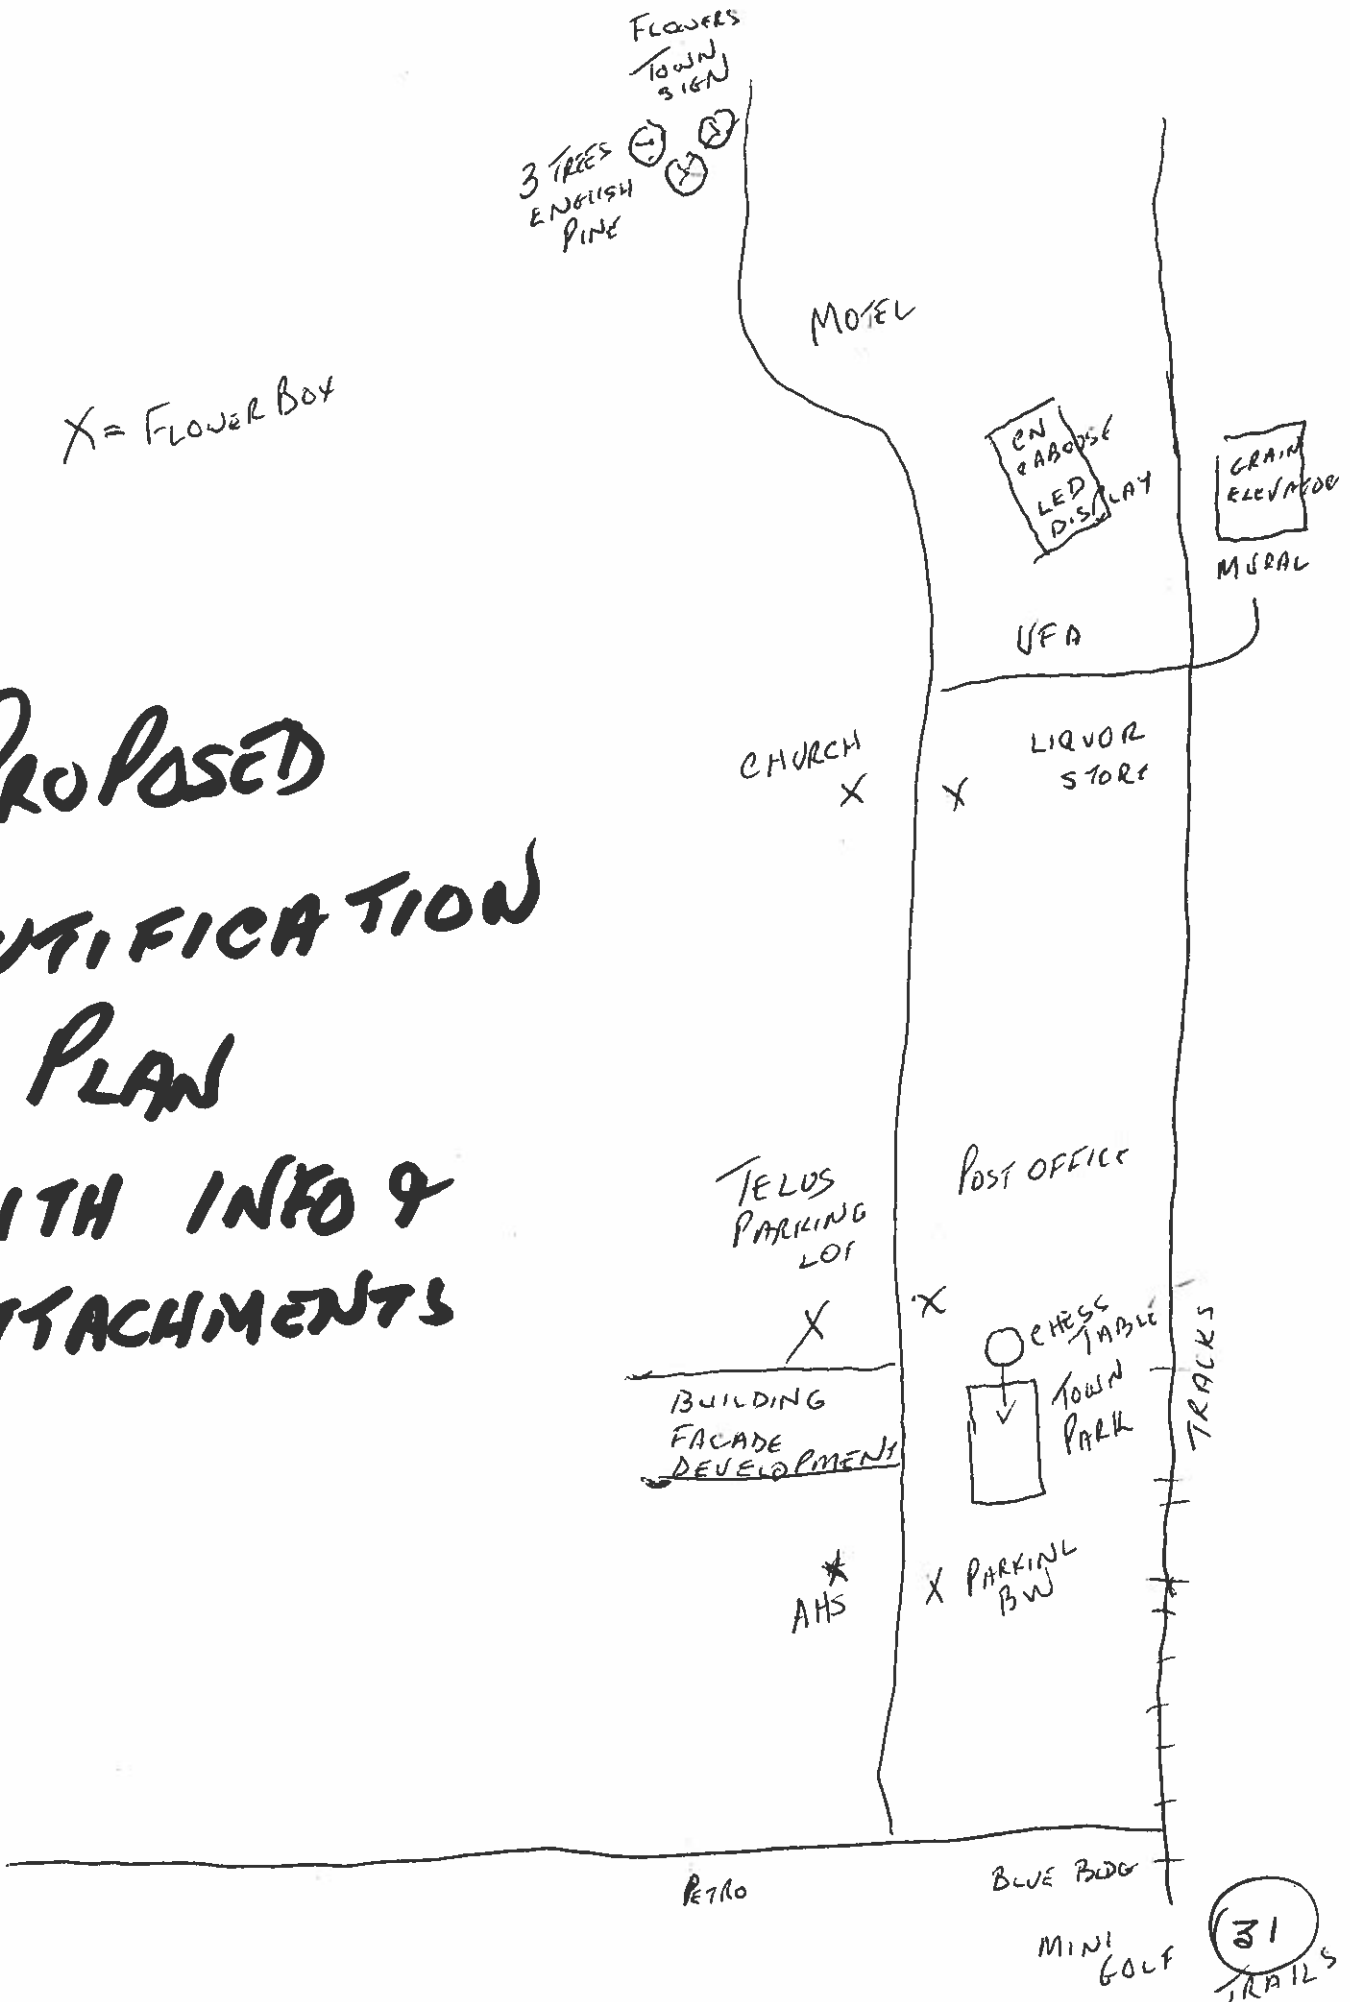 FLOWERS
TOWN
SIGN
3 TREES
ENGLISH
PINE
MOTEL
X = FLOWER BOX
CN
CABOOSE
LED
DISPLAY
GRAIN
ELEVATOR
MURAL
UFA
PROPOSED
UTIFICATION
PLAN
ITH INFO &
TTACHMENTS
CHURCH
X
X
LIQUOR
STORE
TELUS
PARKING
LOT
POST OFFICE
X
X
CHESS
TABLE
TOWN
PARK
TRACKS
BUILDING
FACADE
DEVELOPMENT
AHS
X PARKING
BW
PETRO
BLUE BLDG
MINI
GOLF
31
TRAILS